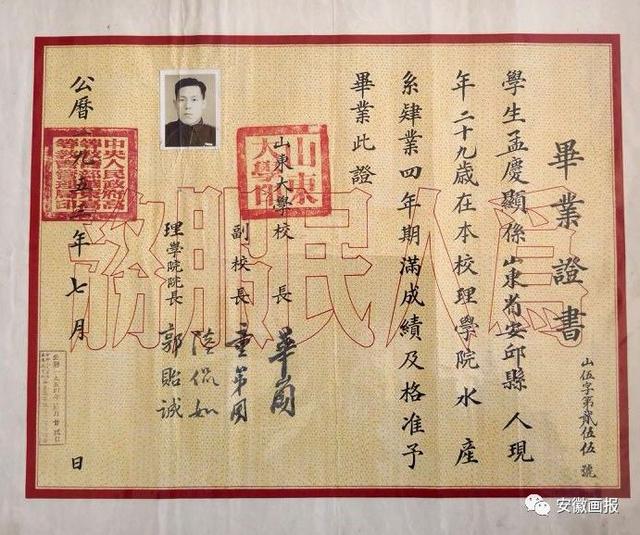 畢業證書
山伍字第貳伍伍號
學生孟慶顯係山東省安邱縣人現
年二十九歲在本校理學院水產
系肄業四年期滿成績及格准予
畢業此證
山東大學校長 華崗
副校長 童第周
陸侃如
理學院院長 郭貽誠
公曆一九五二年七月 日
山東大學印
為人民服務
安徽画报